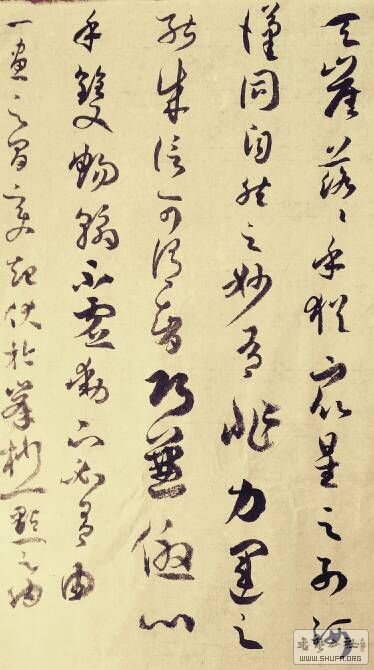 天崖落々乎猶衆星之列河
漢同自然之妙有非力運之
能成信可謂智巧兼優心
手雙暢翰不虛動下必有由
一畫之間變起伏於峯杪一點之內
WWW.SHUFA.ORG